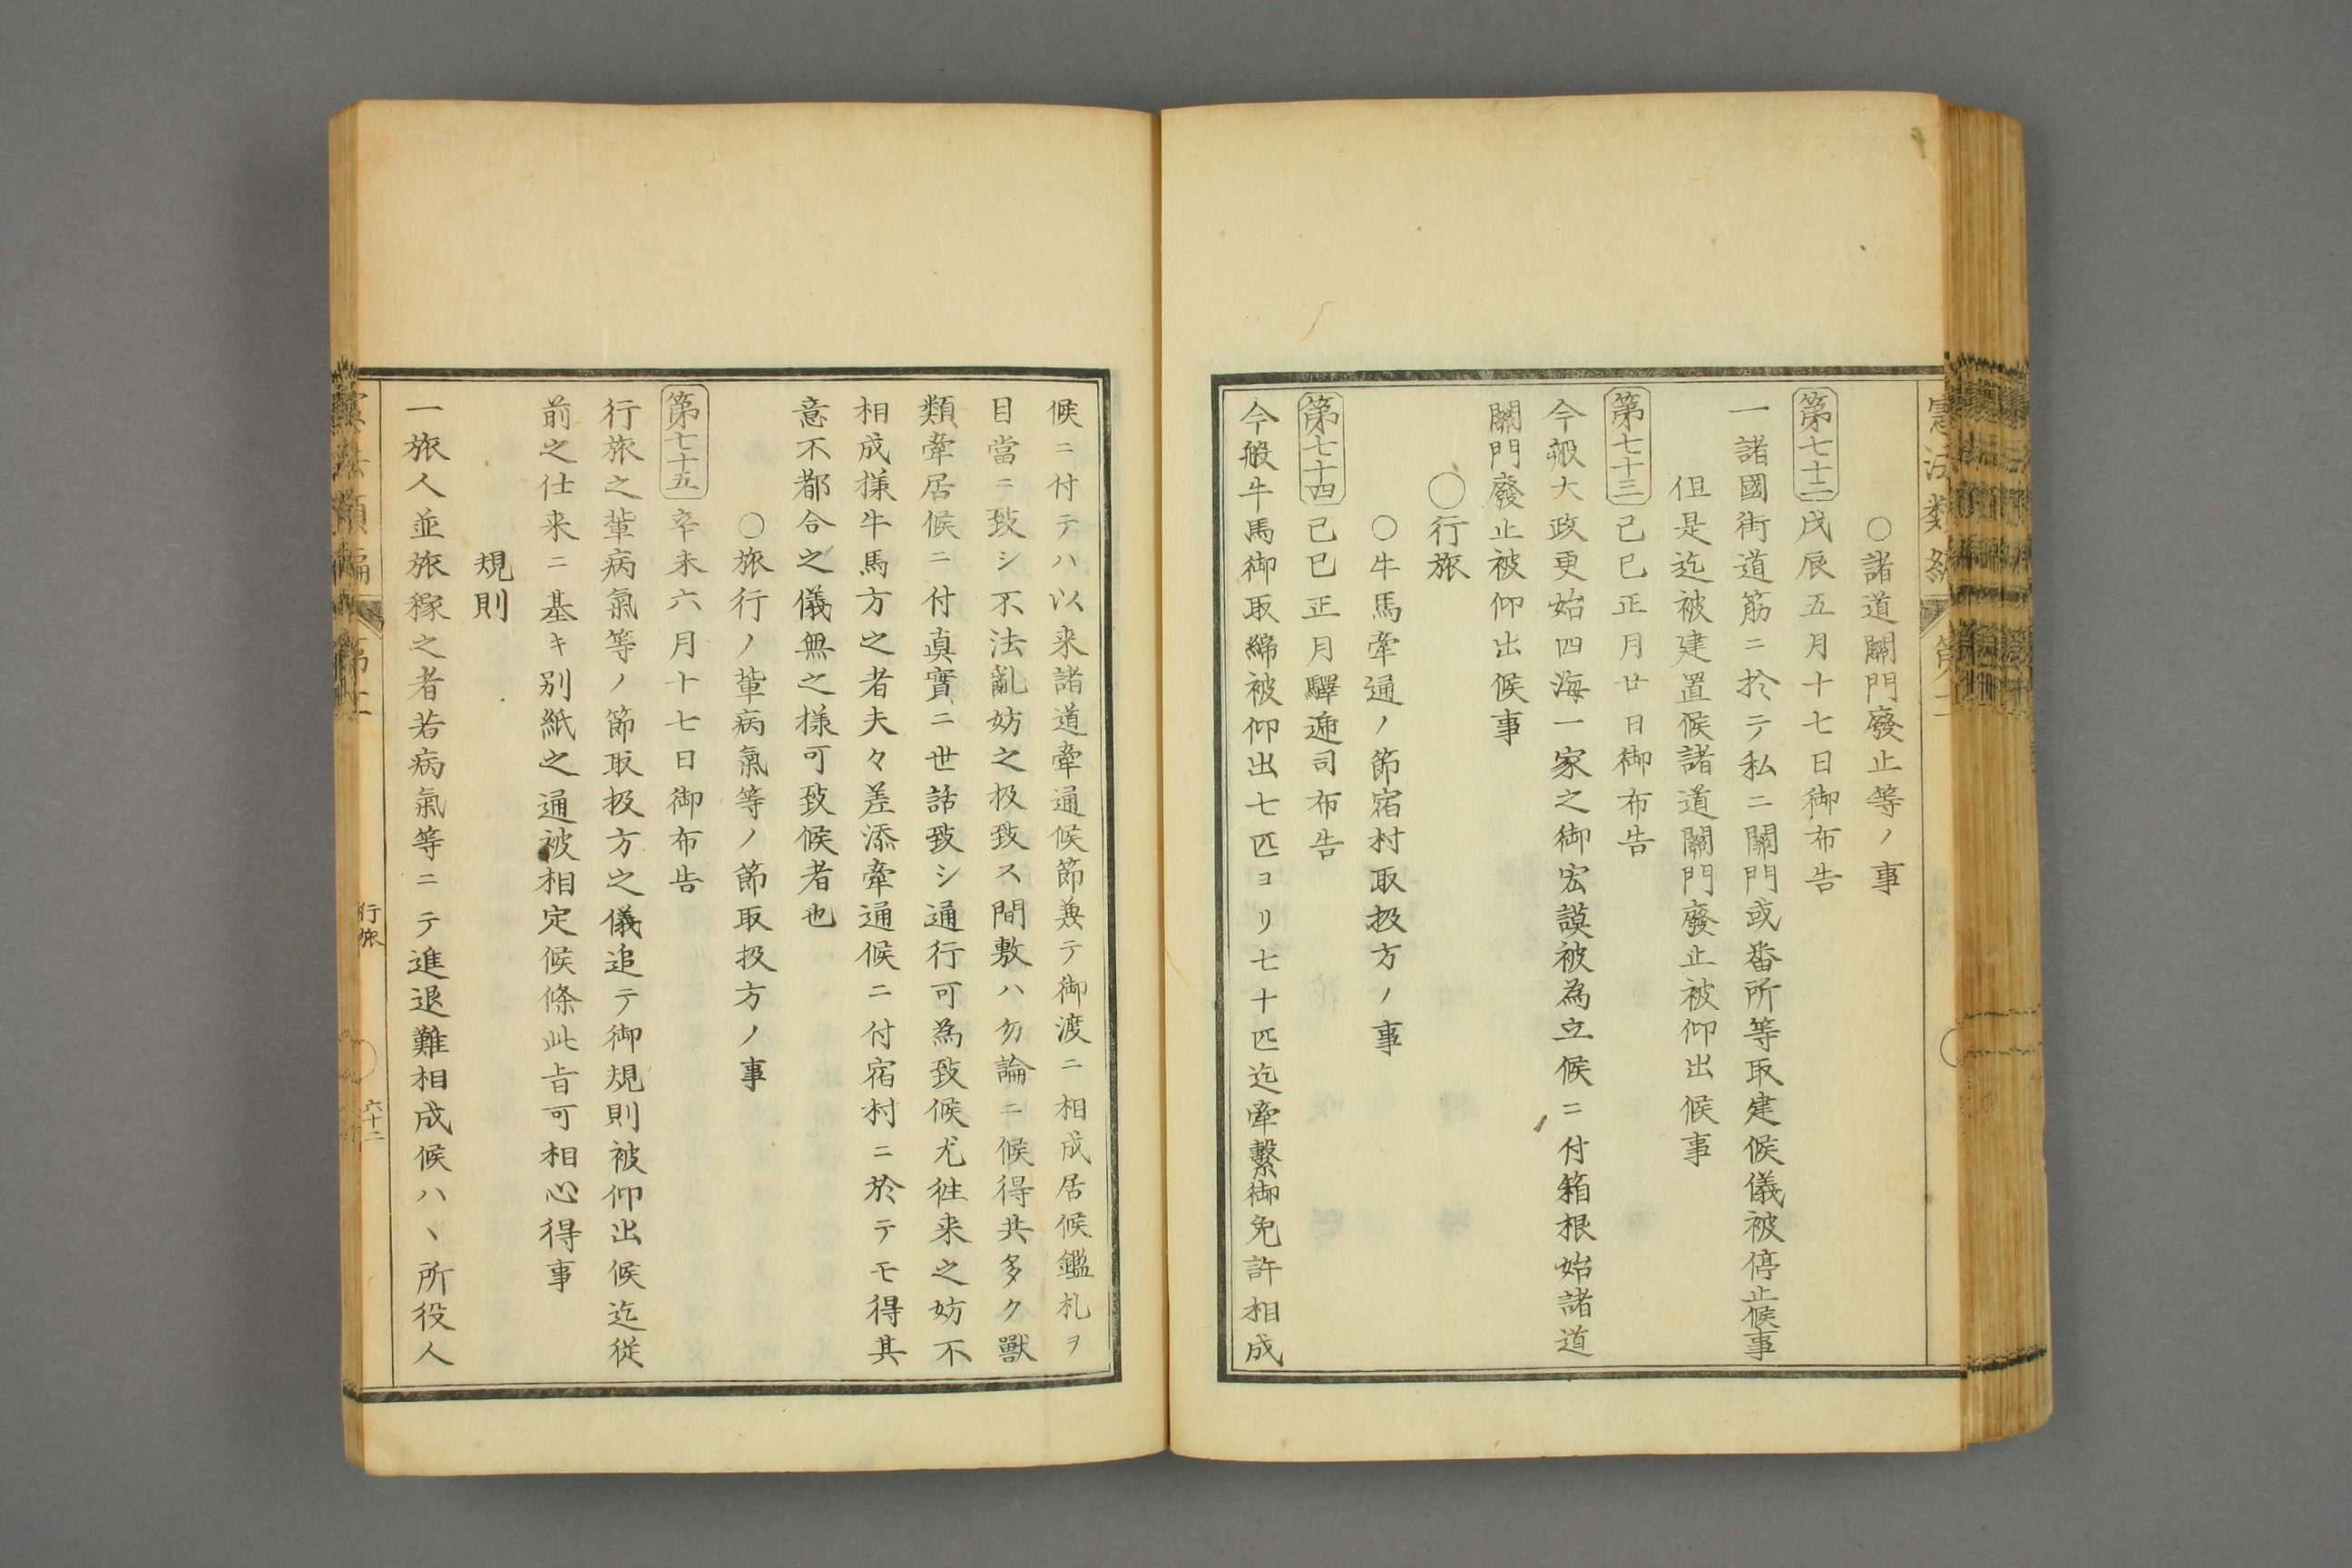 ○諸道關門廢止等ノ事
第七十二戊辰五月十七日御布告
一諸國街道筋ニ於テ私ニ關門或番所等取建候儀被停止候事
但是迄被建置候諸道關門廢止被仰出候事
第七十三己巳正月廿日御布告
今般大政更始四海一家之御宏謨被為立候ニ付箱根始諸道
關門廢止被仰出候事
○行旅
○牛馬牽通ノ節宿村取扱方ノ事
第七十四己巳正月驛逓司布告
今般牛馬御取締被仰出七匹ヨリ七十匹迄牽繋御免許相成
候ニ付テハ以来諸道牽通候節兼テ御渡ニ相成居候鑑札ヲ
目當ニ致シ不法亂妨之扱致ス間敷ハ勿論ニ候得共多ク獸
類牽居候ニ付真實ニ世話致シ通行可為致候尤徃来之妨不
相成様牛馬方之者夫々差添牽通候ニ付宿村ニ於テモ得其
意不都合之儀無之様可致候者也
○旅行ノ輩病氣等ノ節取扱方ノ事
第七十五辛未六月十七日御布告
行旅之輩病氣等ノ節取扱方之儀追テ御規則被仰出候迄従
前之仕来ニ基キ別紙之通被相定候條此旨可相心得事
規則
一旅人並旅稼之者若病氣等ニテ進退難相成候ハヽ所役人
行旅
六十二